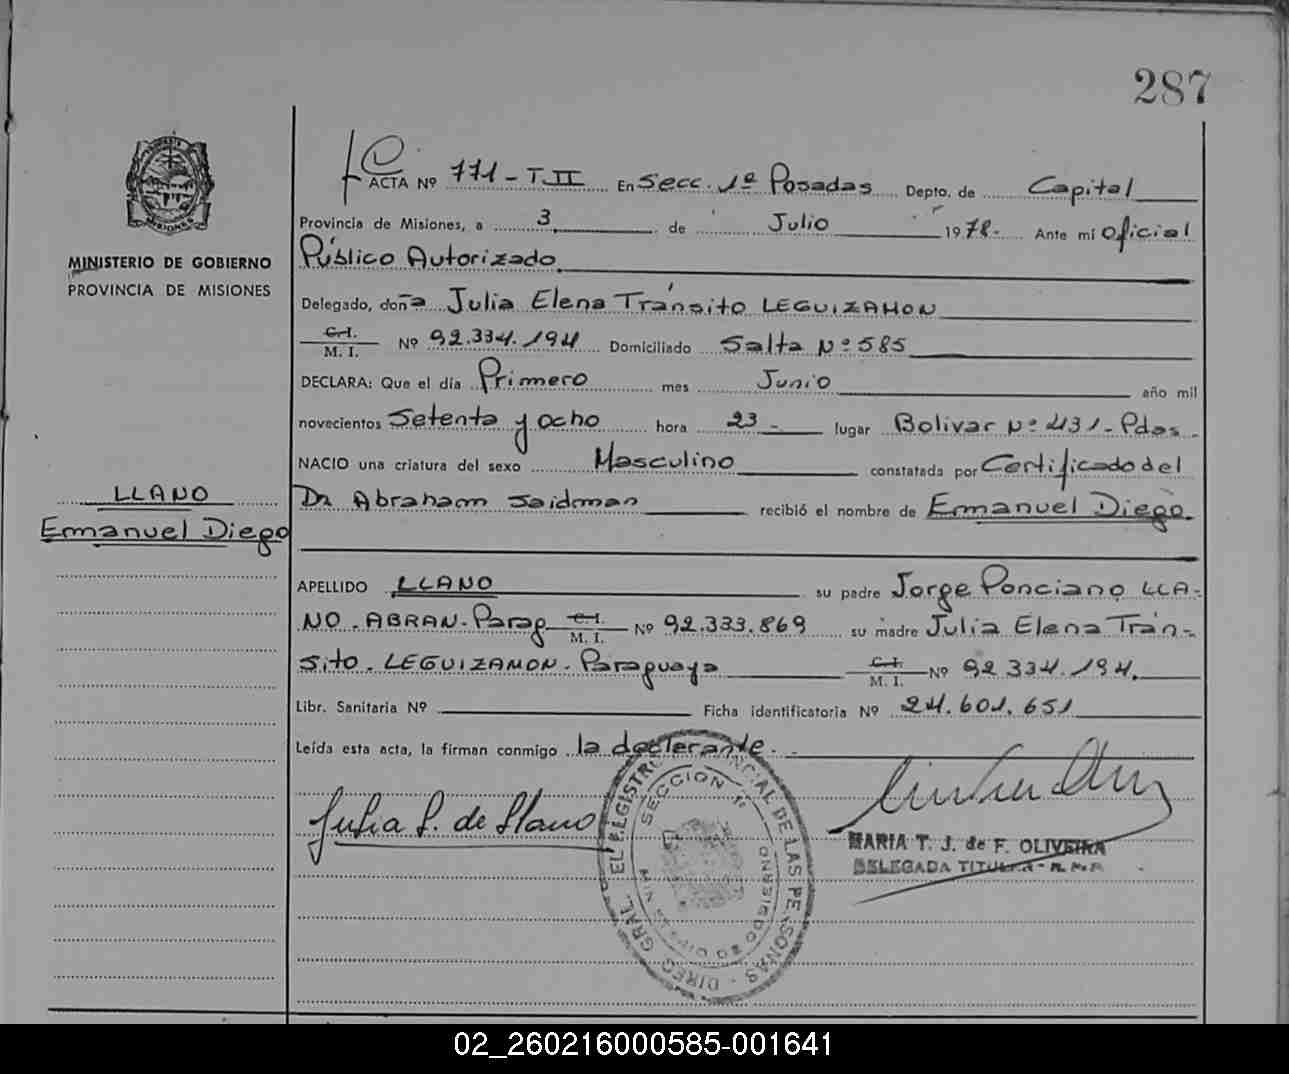 287
MISIONES
MINISTERIO DE GOBIERNO
PROVINCIA DE MISIONES
LLANO
Emmanuel Diego
ACTA Nº 771 - T. II En Secc. 1ª Posadas Depto. de Capital
Provincia de Misiones, a 3 de Julio 1978.- Ante mí Oficial
Público Autorizado
Delegado, doña Julia Elena Tránsito LEGUIZAMON
C.I. / M. I. Nº 92.334.194 Domiciliado Salta Nº 585
DECLARA: Que el día Primero mes Junio año mil
novecientos Setenta y ocho hora 23 - lugar Bolivar Nº 431 - Pdas.
NACIO una criatura del sexo Masculino constatada por Certificado del
Dr. Abraham Saidman recibió el nombre de Emmanuel Diego.
APELLIDO LLANO su padre Jorge Ponciano LLA-
NO. ABRAN - Parag C.I. / M. I. Nº 92.333.869 su madre Julia Elena Trán-
sito. LEGUIZAMON - Paraguaya C.I. / M. I. Nº 92 334.194.
Libr. Sanitaria Nº Ficha identificatoria Nº 24.601.651
Leída esta acta, la firman conmigo la declarante.
Julia L. de Llano
MARIA T. J. de F. OLIVEIRA
DELEGADA TITULAR - R. P. P.
DIREC. GRAL. EL REGISTRO PROVINCIAL DE LAS PERSONAS
SECCION 1ª
02_260216000585-001641